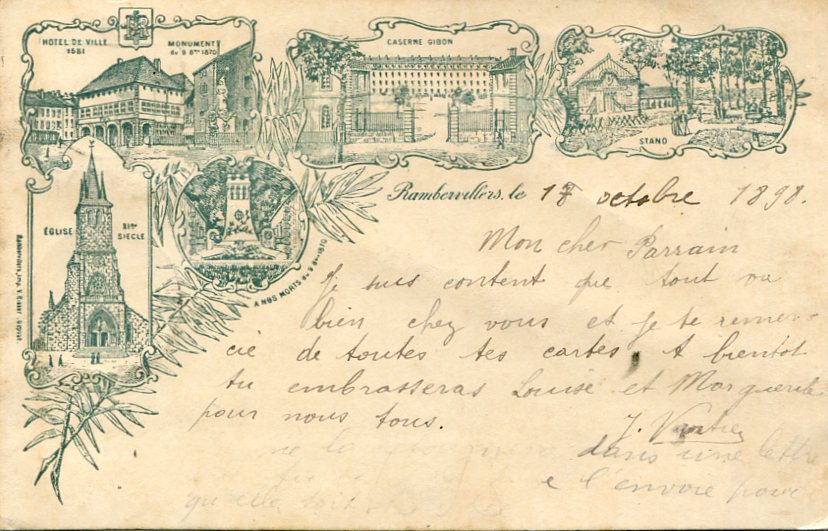 HOTEL DE VILLE
1581
MONUMENT
du 9 8bre 1870
CASERNE GIBON
STAND
ÉGLISE XIIe
SIECLE
A NOS MORTS du 9 8bre 1870
Rambervillers, le 17 octobre 1898.
Mon cher Parrain
Je suis content que tout va
bien chez vous et je te remer-
cie de toutes tes cartes. A bientot
tu embrasseras Louise et Marguerite
pour nous tous.
J.
dans une lettre
l'envoie pour
qu'elle soit